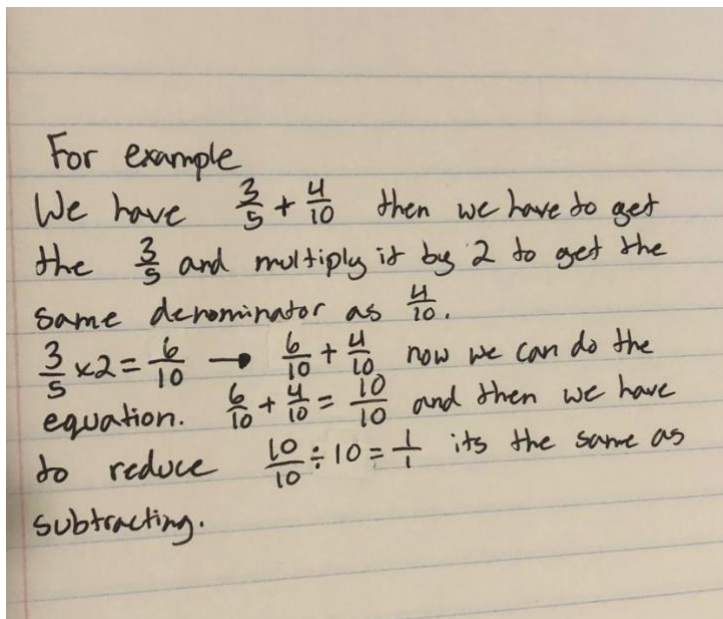 For example
We have 3/5 + 4/10 then we have to get
the 3/5 and multiply it by 2 to get the
same denominator as 4/10.
3/5 x2 = 6/10 → 6/10 + 4/10 now we can do the
equation. 6/10 + 4/10 = 10/10 and then we have
to reduce 10/10 ÷ 10 = 1/1 its the same as
subtracting.